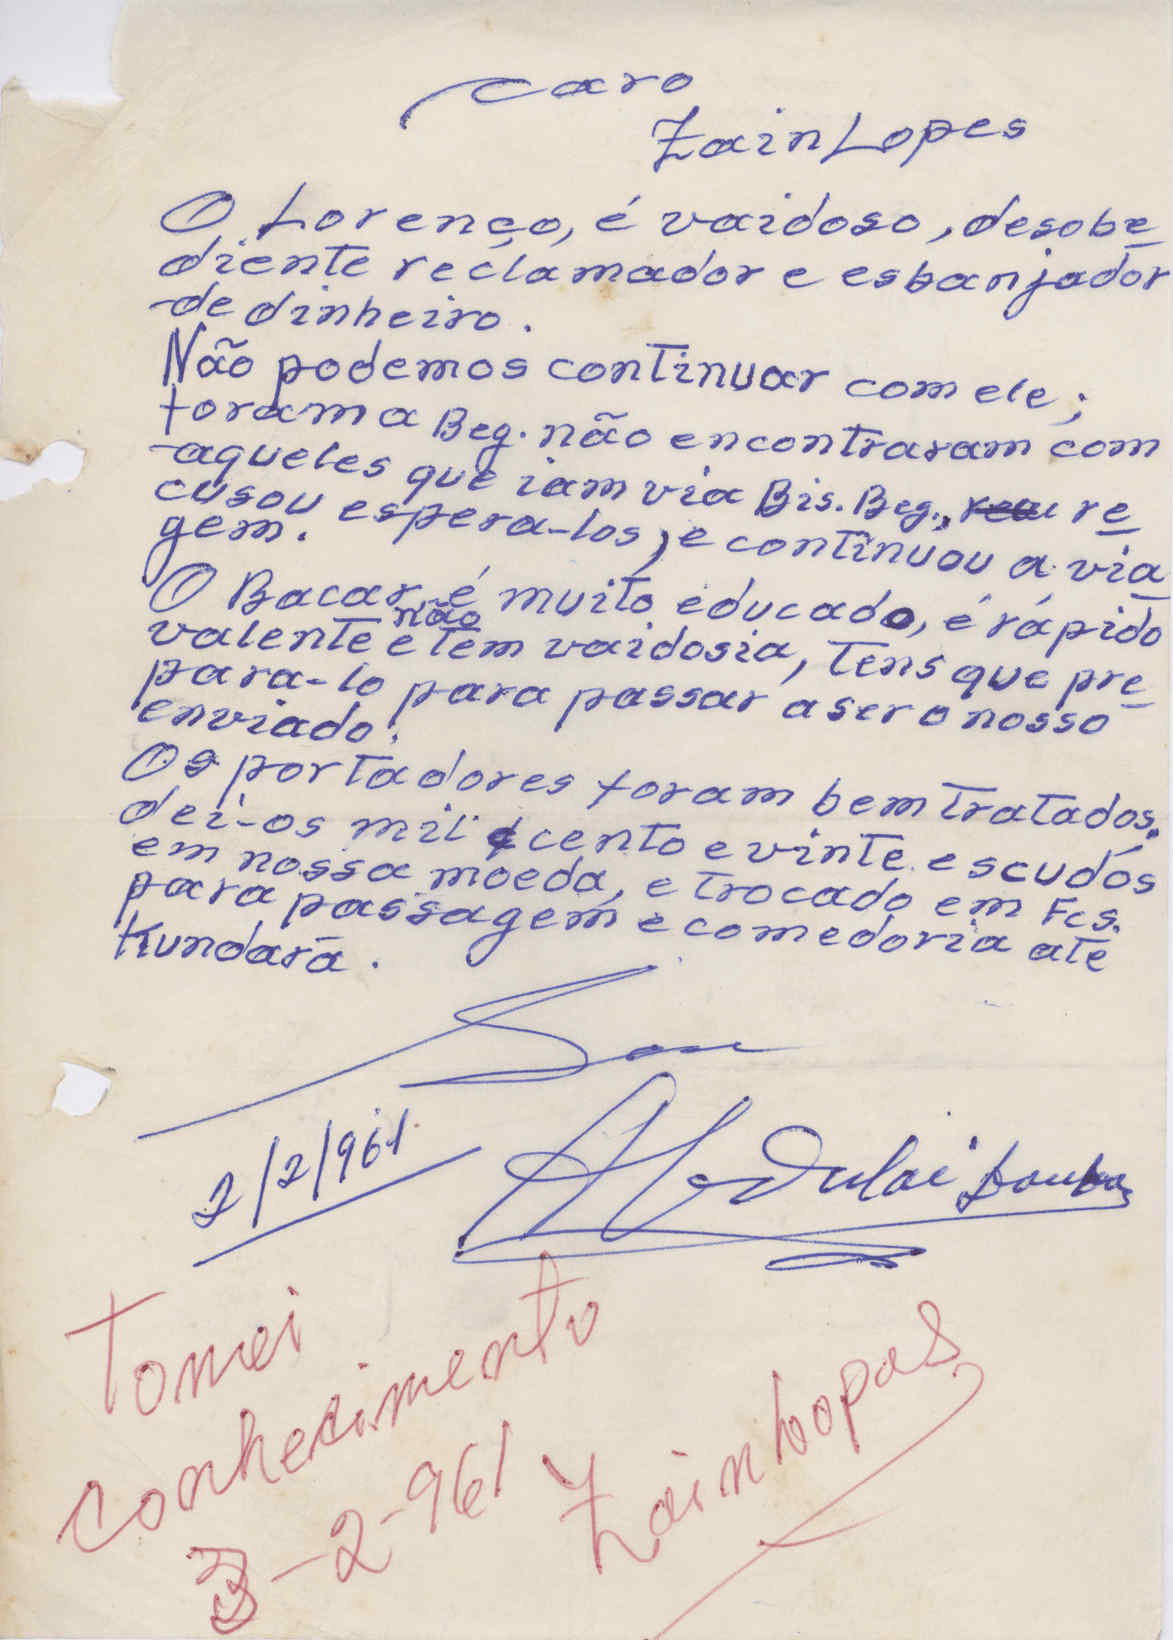 Caro
Zain Lopes
O Lorenço, é vaidoso, desobe
diente reclamador e esbanjador
de dinheiro.
Não podemos continuar com ele;
foram a Beg. não encontraram com
aqueles que iam via Bis. Beg., re
cusou espera-los, e continuou a via
gem.
O Bacar, é muito educado, é rápido
valente e não tem vaidosia, tens que pre
para-lo para passar a ser o nosso
enviado.
Os portadores foram bem tratados,
dei-os mil cento e vinte escudos
em nossa moeda, e trocado em Fcs.
para passagem e comedoria até
Kundara.
2/2/961
Tomei
conhecimento
3-2-961 Zain Lopes